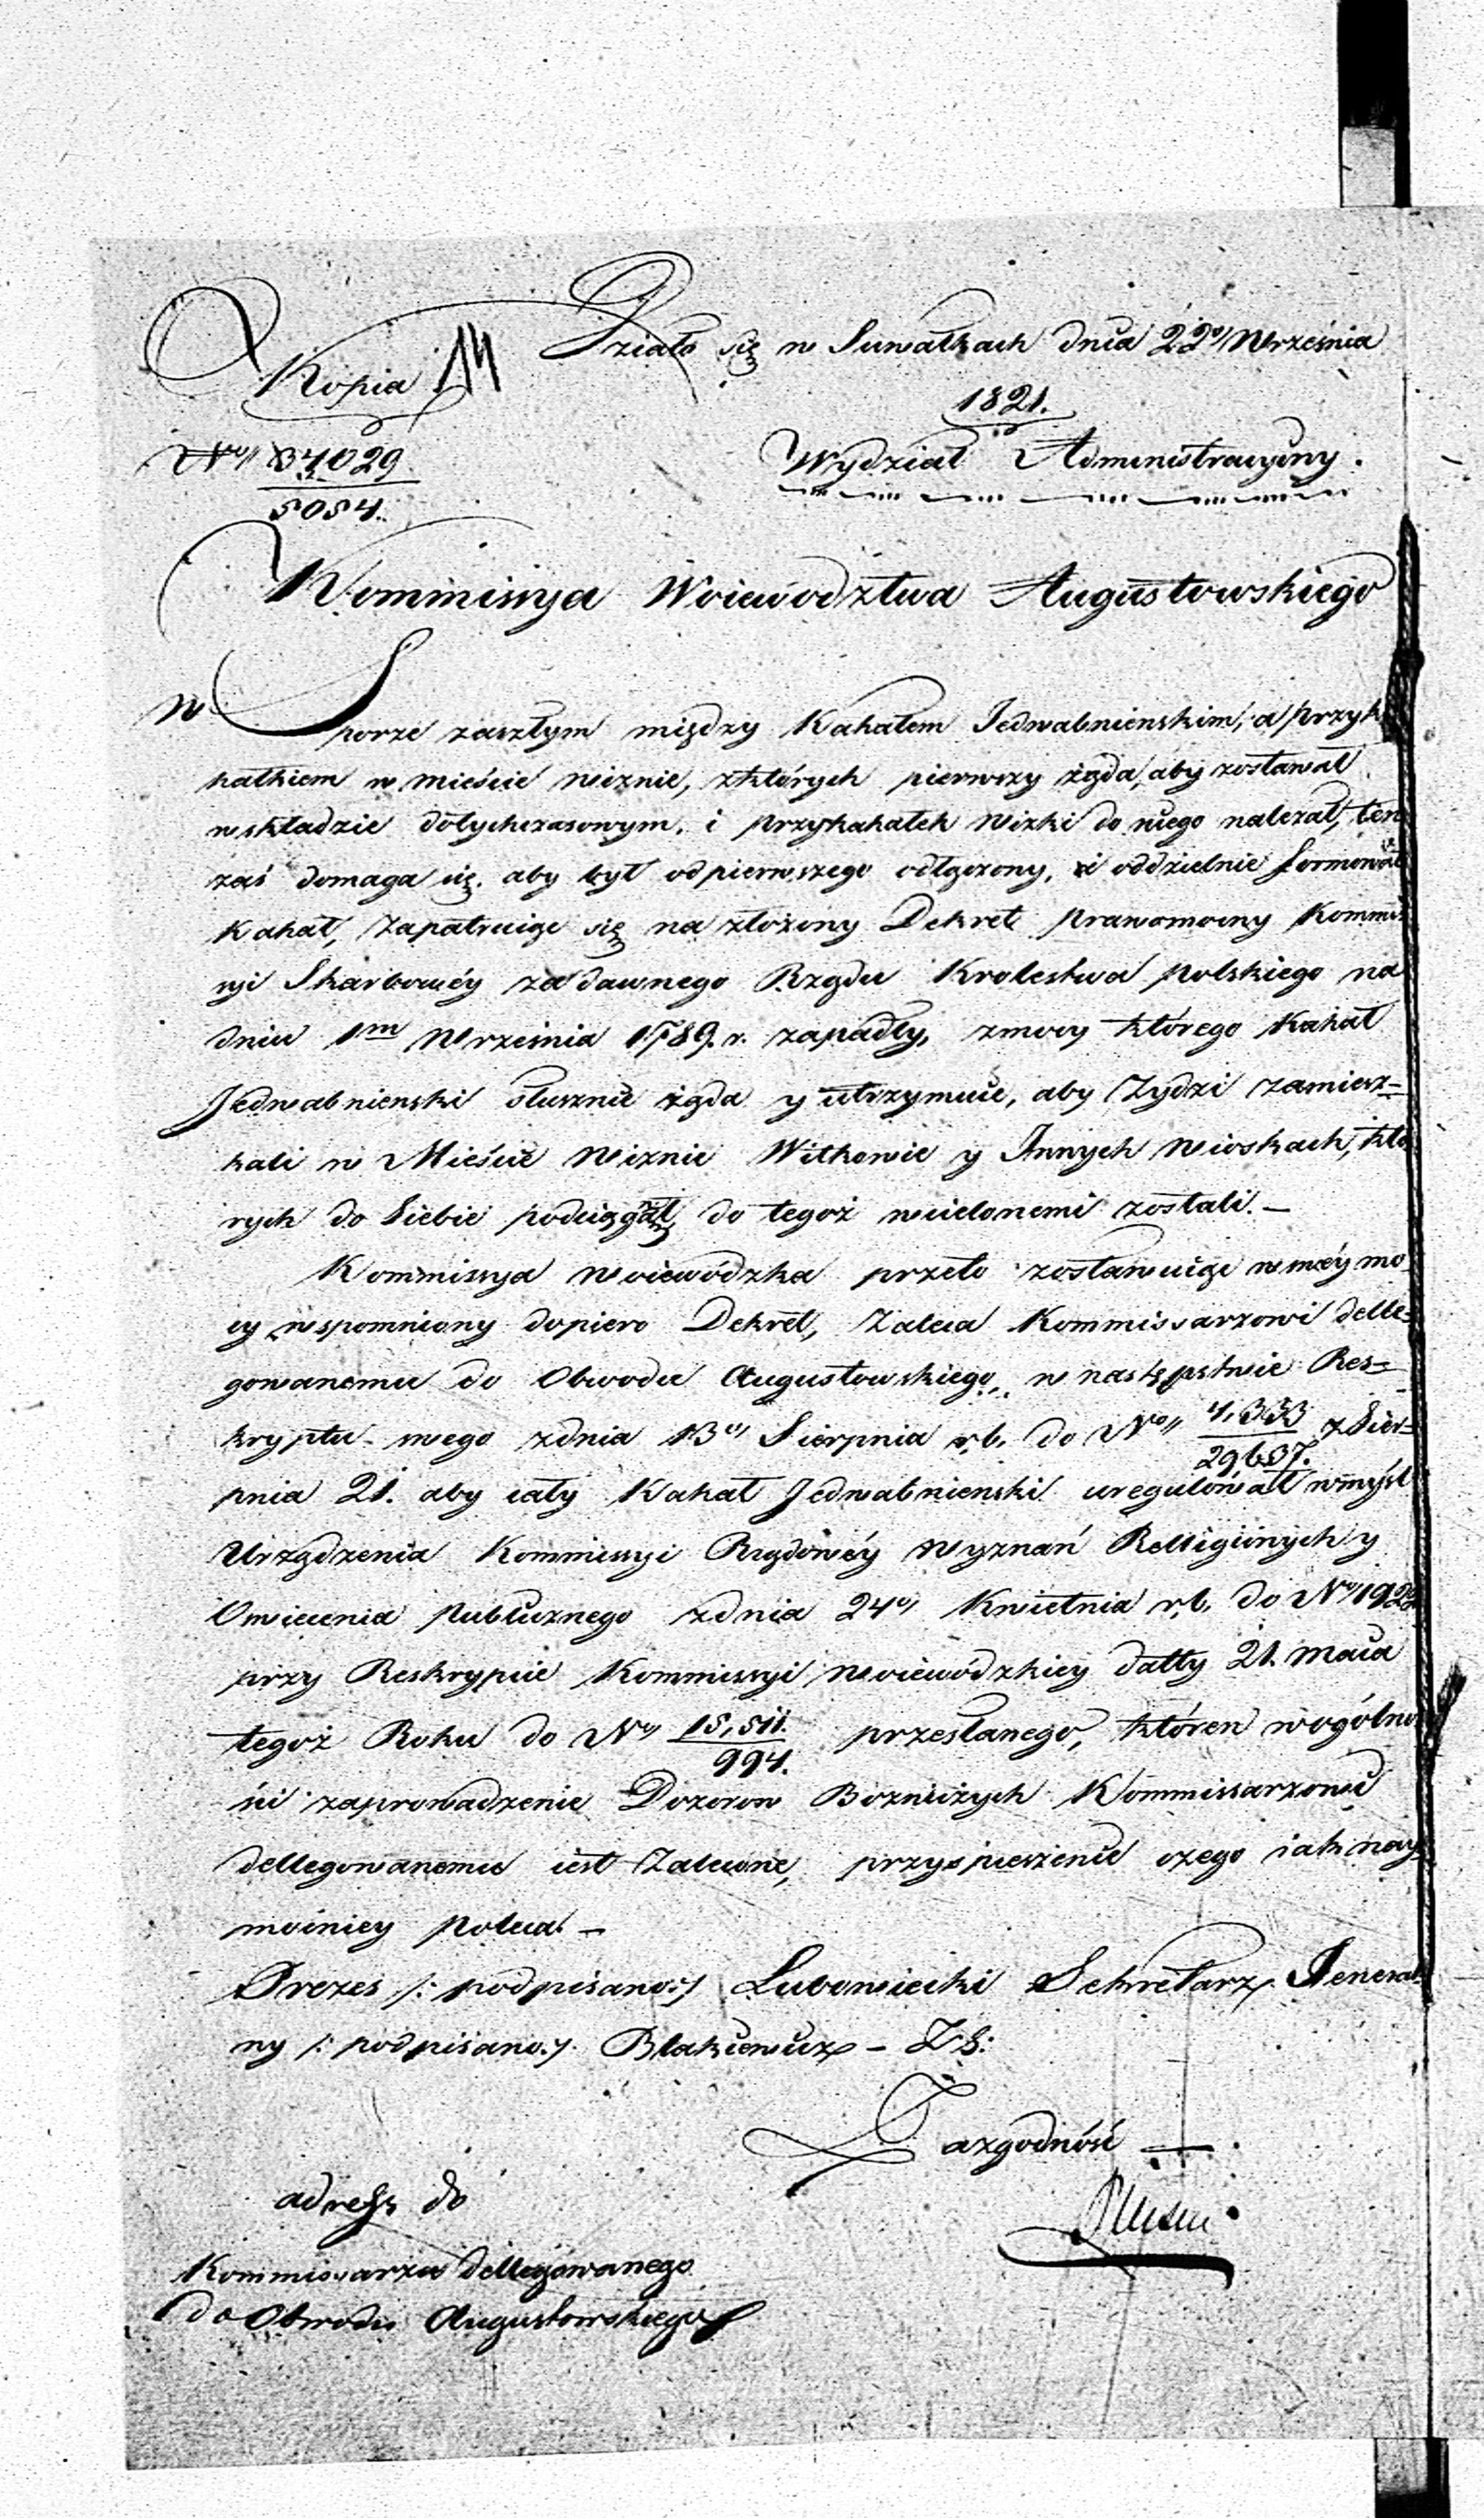 Kopia 14 Działo się w Suwałkach dnia 22º Września
1821.
Nro 34029
5054.
Wydział Administracyiny.
Kommissya Woiewództwa Augustowskiego
W Sporze zaszłym między Kahałem Jedwabnienskim, a przyka
hałkiem w mieście Wiznie, z których pierwszy żąda, aby zostawał
w składzie dotychczasowym, i przykahałek Wizki do niego należał, ten
zaś domaga się, aby był od pierwszego odłączony, i oddzielnie formował
Kahał, Zapatruiąc się na złożony Dekret prawomocny Kommis
syi Skarbowéy za dawnego Rządu Krolestwa Polskiego na
dniu 1m Września 1789. r. zapadły, z mocy którego Kahał
Jedwabnienski słusznie żąda y utrzymuie, aby Żydzi zamiesz=
kali w Mieście Wiznie Witkowie y Innych Wioskach, któ
rych do siebie podciągał, do tegoż wcielonemi zostali. –
Kommissya Woiewódzka przeto zostawuiąc w swéy mo
cy wspomniony dopiero Dekret, Zaleca Kommissarzowi delle=
gowanemu do Obwodu Augustowskiego, w następstwie Res=
kryptu swego z dnia 13º Sierpnia r. b. do Nro 4,333 z Sier=
29637.
pnia 21. aby cały Kahał Jedwabnienski uregulował w myśl
Urządzenia Kommissyi Rządowéy Wyznań Religiinych y
Oswiecenia Publicznego z dnia 24º Kwietnia r. b. do Nro 1922
przy Reskrypcie Kommissyi Woiewódzkiey datty 21. maia
tegoż Roku do Nro 15,511. przesłanego, któren w ogólno
994.
ści zaprowadzenie Dozorow Bozniczych Kommissarzowi
dellegowanemu iest Zalecone, przyspieszenie czego iak nay
mocniey poleca –
Prezes /: podpisano :/ Lubowiecki Sekretarz Jeneral
ny /: podpisano :/ Blakiewicz – LS:
Za zgodność —
adress do
Kommissarza dellegowanego
do Obwodu Augustowskiego